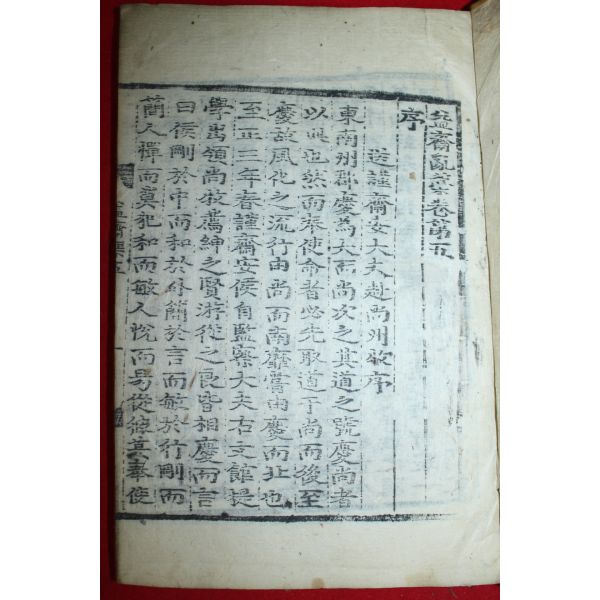 益齋亂藁卷第五
序
送謹齋安大夫赴尚州牧序
東南州郡慶為大而尚次之其道之號慶尚者
以此也然而奉使命者必先取道于尚而後至
慶故風化之流行由尚而南靡嘗由慶而北也
至正三年春謹齋安侯自監察大夫右文館提
學出領尚牧薦紳之賢游從之良皆相慶而言
曰侯剛於中而和於外簡於言而敏於行剛而
簡人憚而莫犯和而敏人悅而易從其奉使
益齋集五